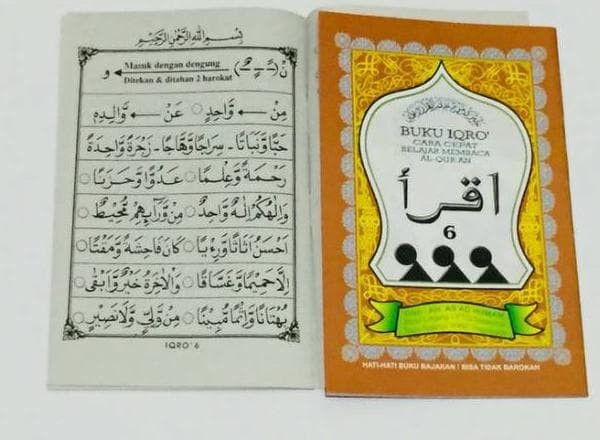 بِسْمِ اللهِ الرَّحْمٰنِ الرَّحِيْمِ
نْ (ــًــٍــٌ) Masuk dengan dengung و
Ditekan & ditahan 2 harokat
مِنْ وَّاحِدٍ ○ عَنْ وَّالِدِهِ
حَبًّا وَّنَبَاتًا - سِرَاجًا وَّهَّاجًا - زَجْرَةٌ وَّاحِدَةٌ
رَحْمَةً وَّعِلْمًا ○ عَدُوًّا وَّحَزَنًا ○
وَاِلٰهُكُمْ اِلٰهٌ وَّاحِدٌ ○ مِنْ وَّرَآئِهِمْ مُّحِيْطٌ ○
اَحْسَنُ اَثَاثًا وَّرِءْيًا ○ كَانَ فَاحِشَةً وَّمَقْتًا ○
اِلَّا حَمِيْمًا وَّغَسَّاقًا ○ وَالْاٰخِرَةُ خَيْرٌ وَّاَبْقٰى ○
بُهْتَانًا وَّاِثْمًا مُّبِيْنًا ○ مِنْ وَّلِيٍّ وَّلَا نَصِيْرٍ ○
IQRO' 6
BUKU IQRO'
CARA CEPAT
BELAJAR MEMBACA
AL-QUR'AN
اقرأ
6
HATI-HATI BUKU BAJAKAN ! BISA TIDAK BAROKAH